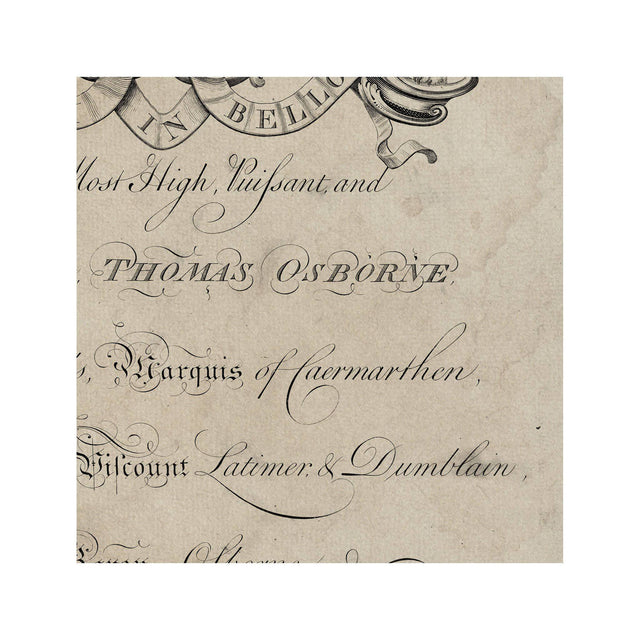 IN BELLO
Most High, Puissant, and
THOMAS OSBORNE,
Marquis of Caermarthen,
Viscount Latimer, & Dumblain,
Baron Osborne